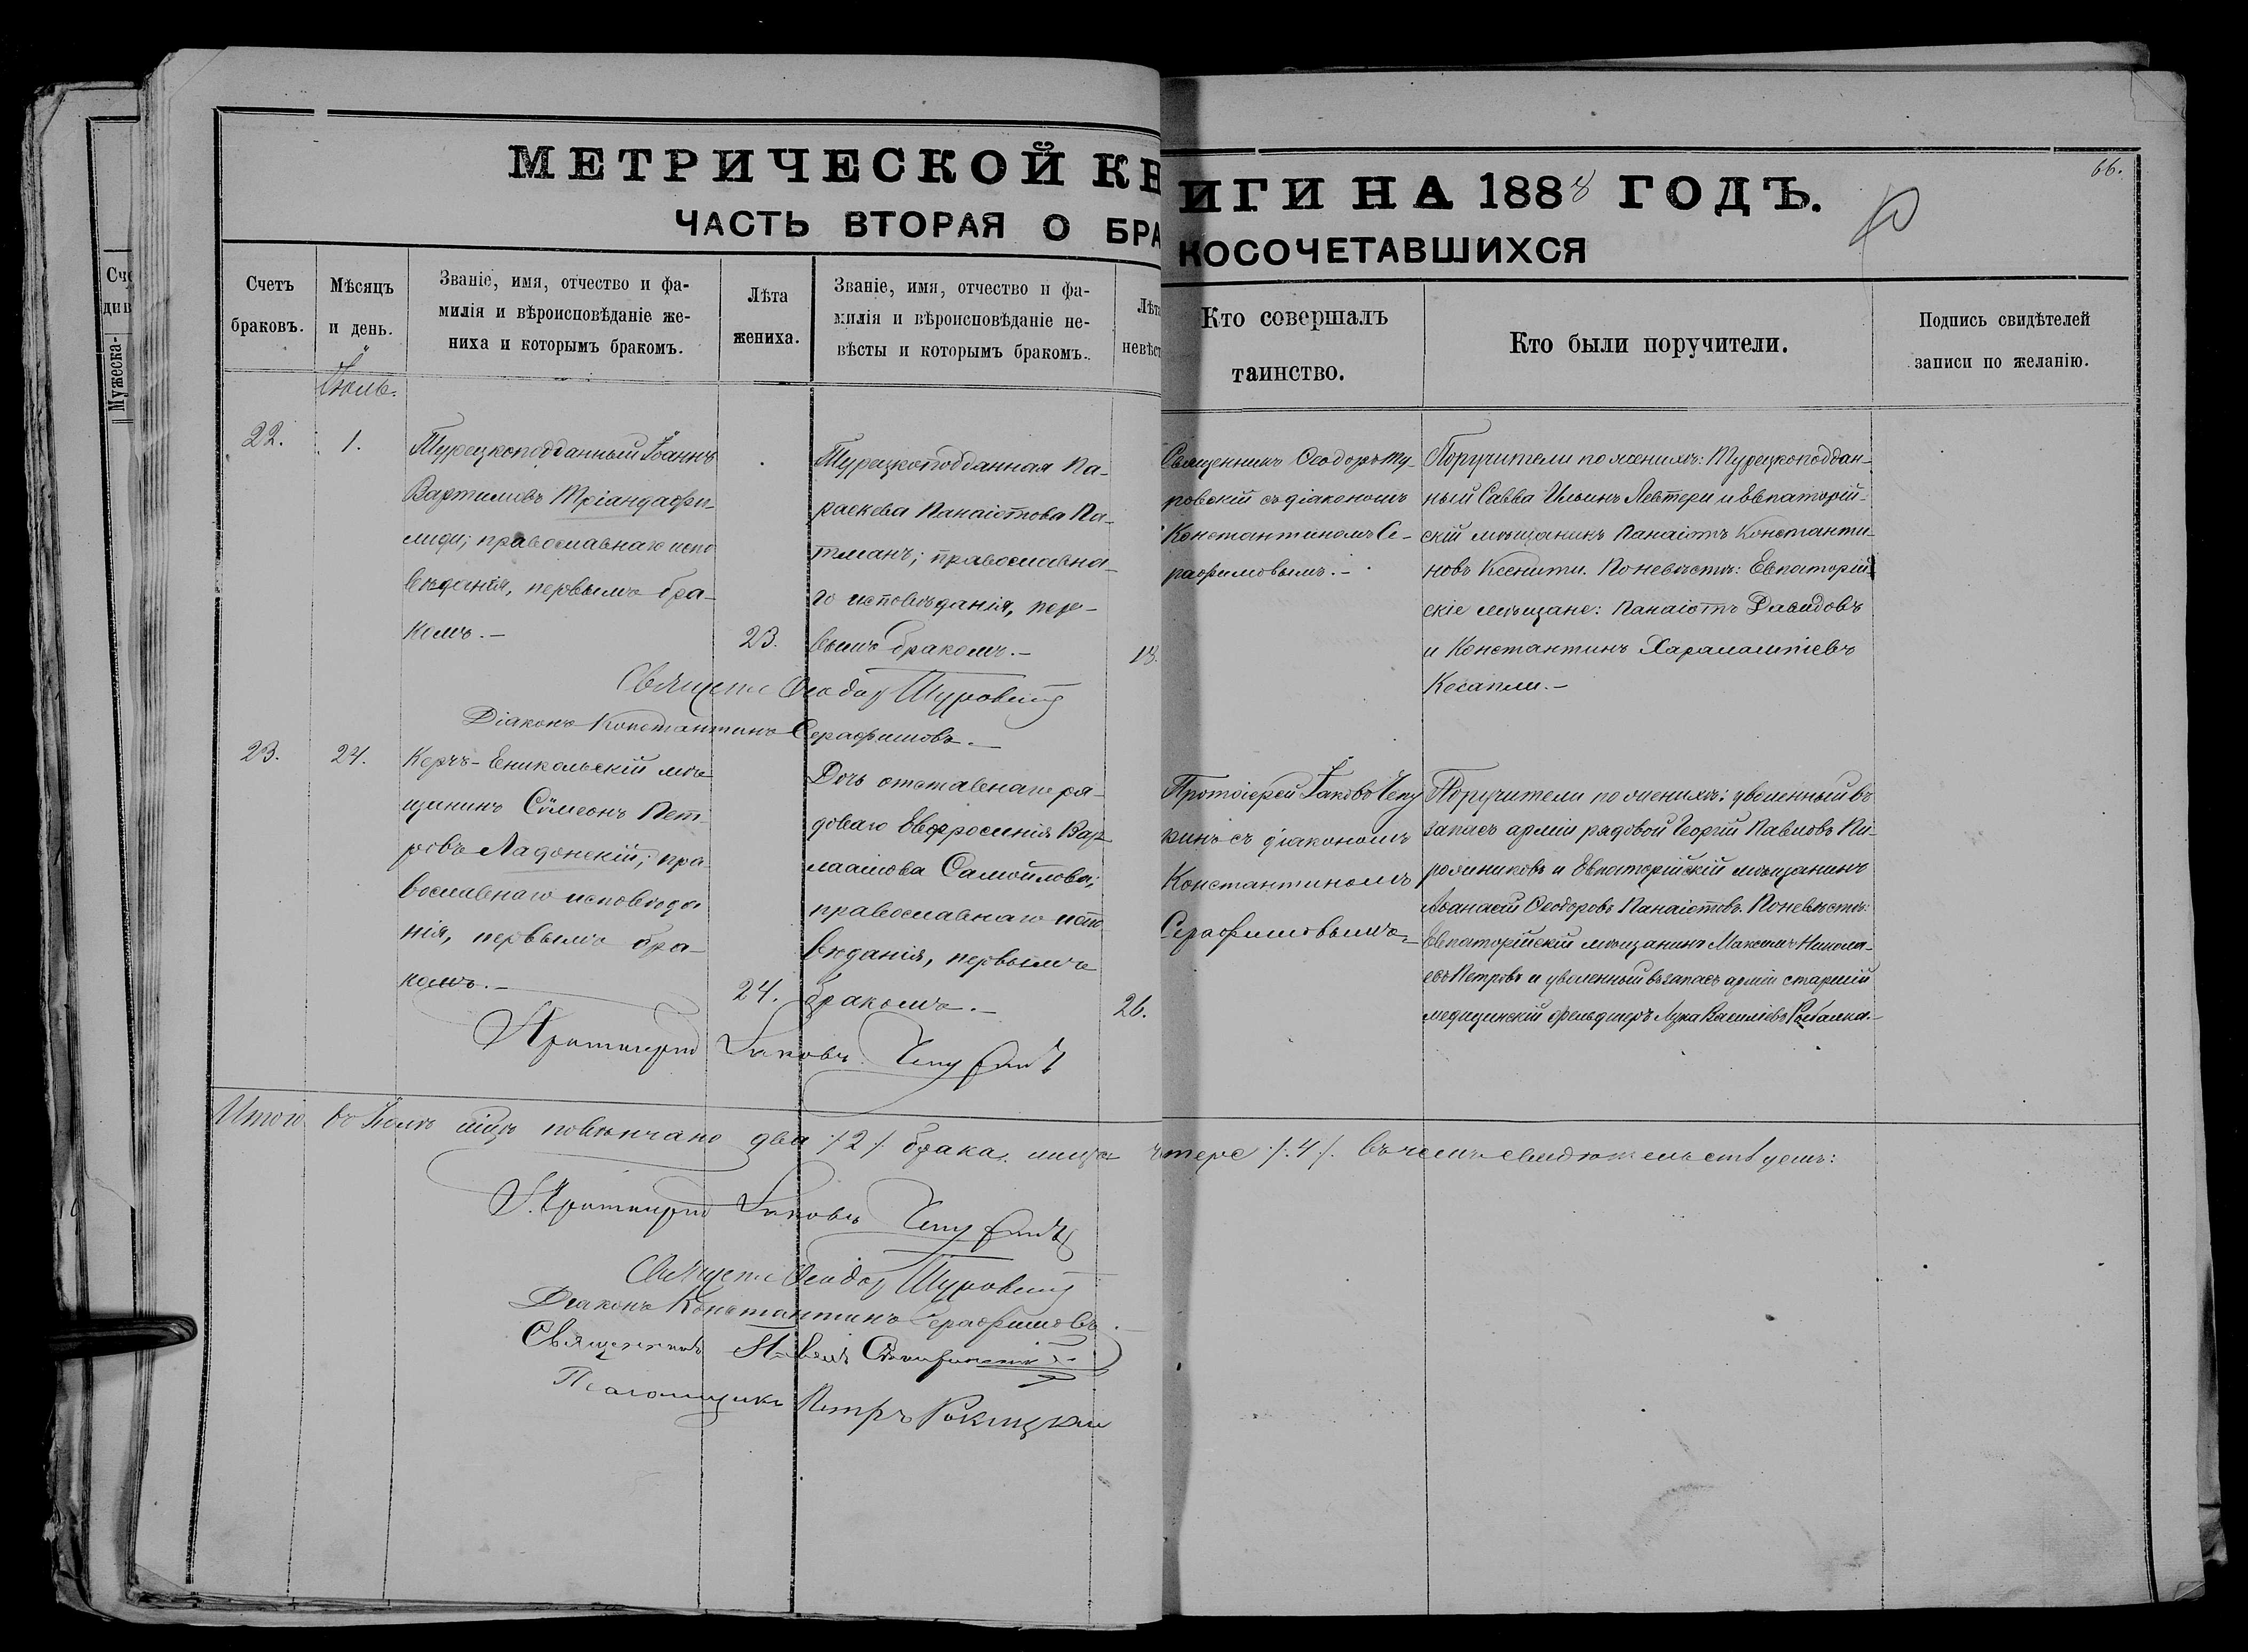 МЕТРИЧЕСКОЙ КН
ИГИ НА 1888 ГОДЪ.
66.
ЧАСТЬ ВТОРАЯ О БРА
КОСОЧЕТАВШИХСЯ
Мужеска-
Счетъ
браковъ.
Мѣсяцъ
и день.
Званіе, имя, отчество и фа-
милія и вѣроисповѣданіе же-
ниха и которымъ бракомъ.
Лѣта
жениха.
Званіе, имя, отчество и фа-
милія и вѣроисповѣданіе не-
вѣсты и которымъ бракомъ.
Лѣта
невѣст
Кто совершалъ
таинство.
Кто были поручители.
Подпись свидѣтелей
записи по желанію.
Іюль.
22.
1.
Турецкоподданный Іоаннъ
Вартимовъ Тріандафи-
лиди; православнаго испо
вѣданія, первымъ бра-
комъ.-
23.
Турецкоподданная Па-
раскева Панаіотова Па-
тманъ; православна-
го исповѣданія, пер-
вымъ бракомъ.-
18.
Священникъ Ѳеодоръ Ту-
ровскій съ діакономъ
Константиномъ Се-
рафимовымъ.-
Поручители по женихѣ: Турецкоподдан-
ный Савва Ильинъ Левтери и Евпаторій-
скій мѣщанинъ Панаіотъ Константи-
новъ Ксенити. По невѣстѣ: Евпаторій
скіе мѣщане: Панаіотъ Давидовъ
и Константинъ Харалампіевъ
Кесапли.-
Священ Ѳеодор Туровскій
Діаконъ Константинъ Серафимовъ.-
23.
24.
Керчь-Еникольскій мѣ
щанинъ Сѵмеонъ Пет-
ровъ Ладонскій; пра
вославнаго исповѣда
нія, первымъ бра-
комъ.-
24.
Дочь отставнаго ря-
доваго Евфросинія Вар
лаамова Самойлова;
православнаго испо
вѣданія, первымъ
бракомъ.-
26.
Протоіерей Іаковъ Чепу
ринъ съ діакономъ
Константиномъ
Серафимовымъ.-
Поручители по женихѣ: уволенный въ
запасъ арміи рядовой Георгій Павловъ Пи-
рожниковъ и Евпаторійскій мѣщанинъ
Аѳанасій Ѳеодоровъ Панаіотовъ. По невѣстѣ:
Евпаторійскій мѣщанинъ Максимъ Никола-
евъ Петровъ и уволенный въ запасъ арміи старшій
медицинскій фельдшеръ Лука Василіевъ Рыбалка.-
Протоиерей Іаковъ Чепуринъ
Итого въ Іюлѣ мцѣ повѣнчано два /2/ брака, лицъ четверо /.4/. въ чемъ свидѣтельствуемъ:
Протоиерей Іаковъ Чепуринъ
Священ Ѳеодор Туровскій
Діаконъ Константинъ Серафимовъ.
Священникъ
Псаломщикъ Петръ Рокицкій